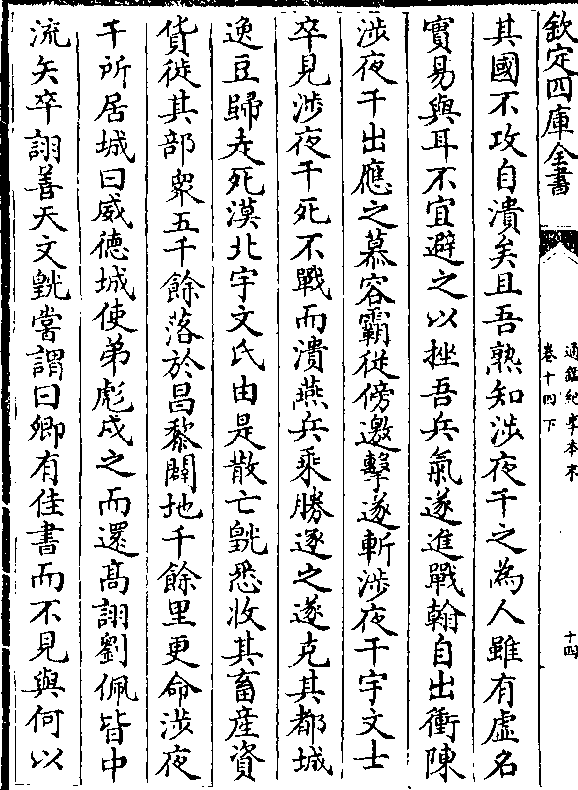 欽定四庫全書
通鑑紀事本末
卷十四下
十四
其國不攻自潰矣且吾熟知涉夜干之為人雖有虛名
實易與耳不宜避之以挫吾兵氣遂進戰翰自出衝陳
涉夜干出應之慕容霸從傍邀擊遂斬涉夜干宇文士
卒見涉夜干死不戰而潰燕兵乘勝逐之遂克其都城
逸豆歸走死漠北宇文氏由是散亡皝悉收其畜產資
貨徙其部眾五千餘落於昌黎闢地千餘里更命涉夜
干所居城曰威德城使弟彪戍之而還高詡劉佩皆中
流矢卒詡善天文皝嘗謂曰卿有佳書而不見與何以